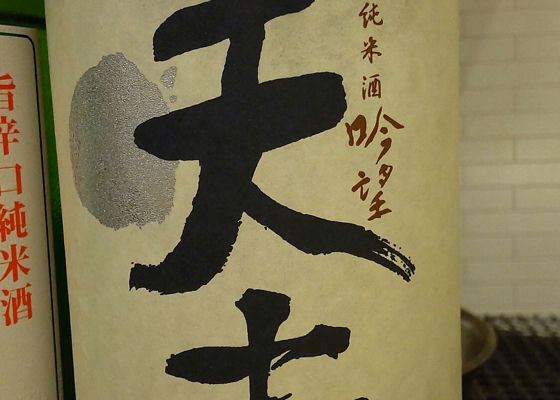 純米酒
吟望
天
旨辛口純米酒